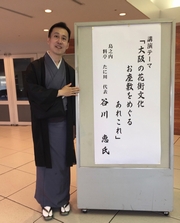 講演テーマ
「大阪の花街文化
お座敷をめぐる
あれこれ」
島之内
料亭 たに川 代表
谷川 恵 氏